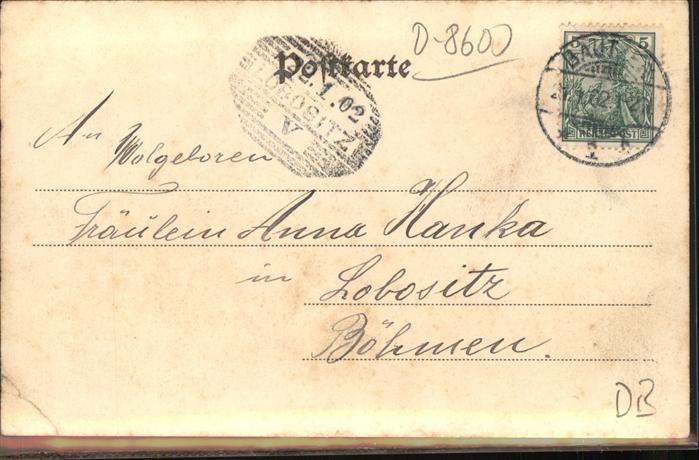 D-8600
Postkarte
.1.02
LOBOSITZ
V
5
BAUT
REICHSPOST
An
Wolgeboren
Fräulein Anna Hanka
in
Lobositz
Böhmen.
DB